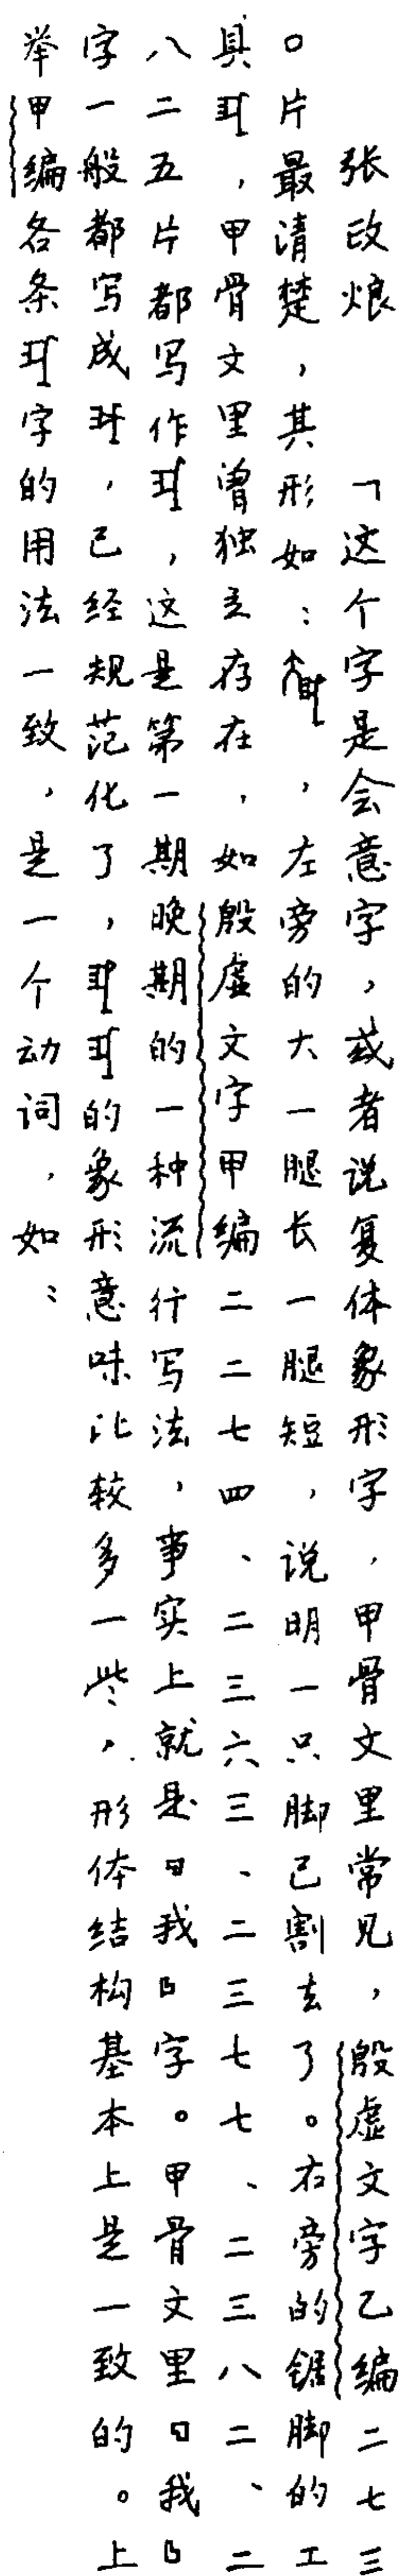 张政烺 「这个字是会意字，或者说复体象形字，甲骨文里常见，殷虚文字乙编二七三
○片最清楚，其形如：，左旁的大一腿长一腿短，说明一只脚已割去了。右旁的锯脚的工
具，甲骨文里曾独立存在，如殷虚文字甲编二二七四、二三六三、二三七七、二三八二、二
八二五片都写作，这是第一期晚期的一种流行写法，事实上就是『我』字。甲骨文里『我』
字一般都写成，已经规范化了，的象形意味比较多一些，形体结构基本上是一致的。上
举甲编各条字的用法一致，是一个动词，如：